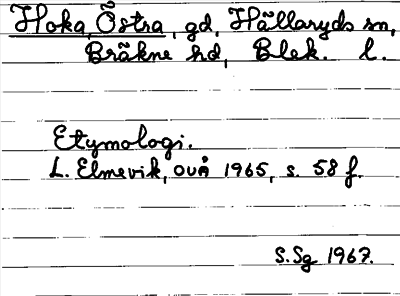 Hoka, Östra, gd, Hällaryds sn,
Bräkne hd, Blek. l.
Etymologi.
L. Elmevik, OUÅ 1965, s. 58 f.
S.Sg 1967.